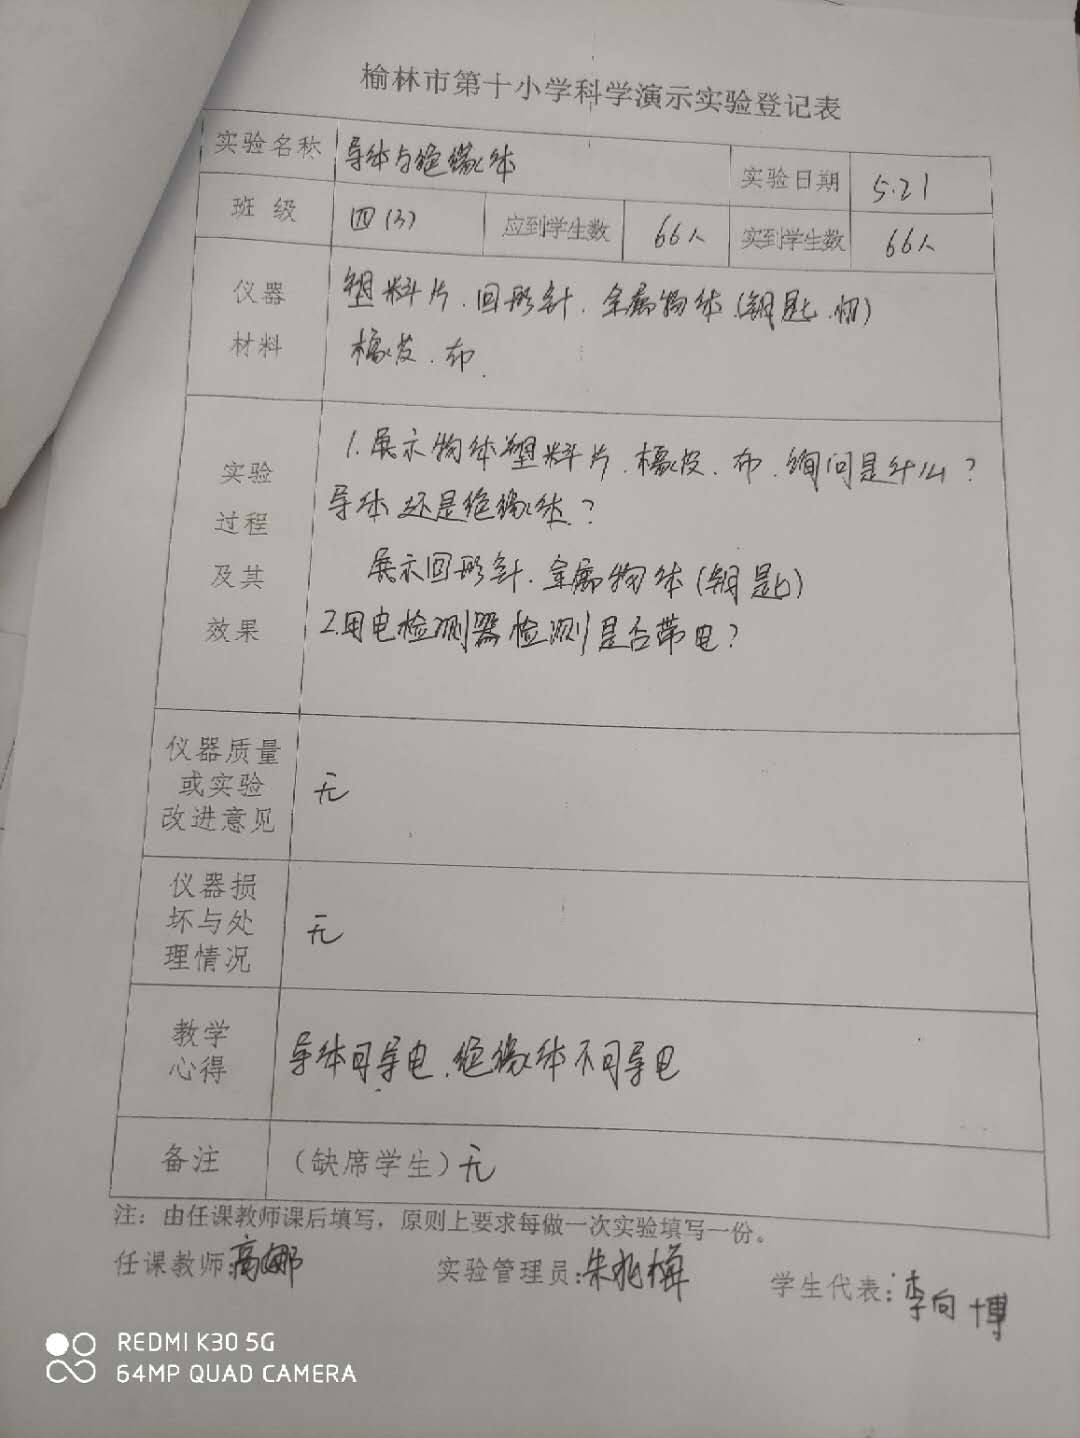 榆林市第十小学科学演示实验登记表
实验名称 导体与绝缘体 实验日期 5.21
班 级 四(3) 应到学生数 66人 实到学生数 66人
仪器 塑料片.回形针.金属物体(钥匙.
材料 橡皮.布.
实验 1.展示物体塑料片.橡皮.布.询问是什么?
过程 导体还是绝缘体.?
及其 展示回形针.金属物体(钥匙)
效果 2.用电检测器检测是否带电?
仪器质量
或实验 无
改进意见
仪器损
坏与处 无
理情况
教学
心得 导体可导电.绝缘体不可导电
备注 (缺席学生)无
注:由任课教师课后填写,原则上要求每做一次实验填写一份。
任课教师:高娜 实验管理员:朱兆梅 学生代表:李向博
REDMI K30 5G
64MP QUAD CAMERA